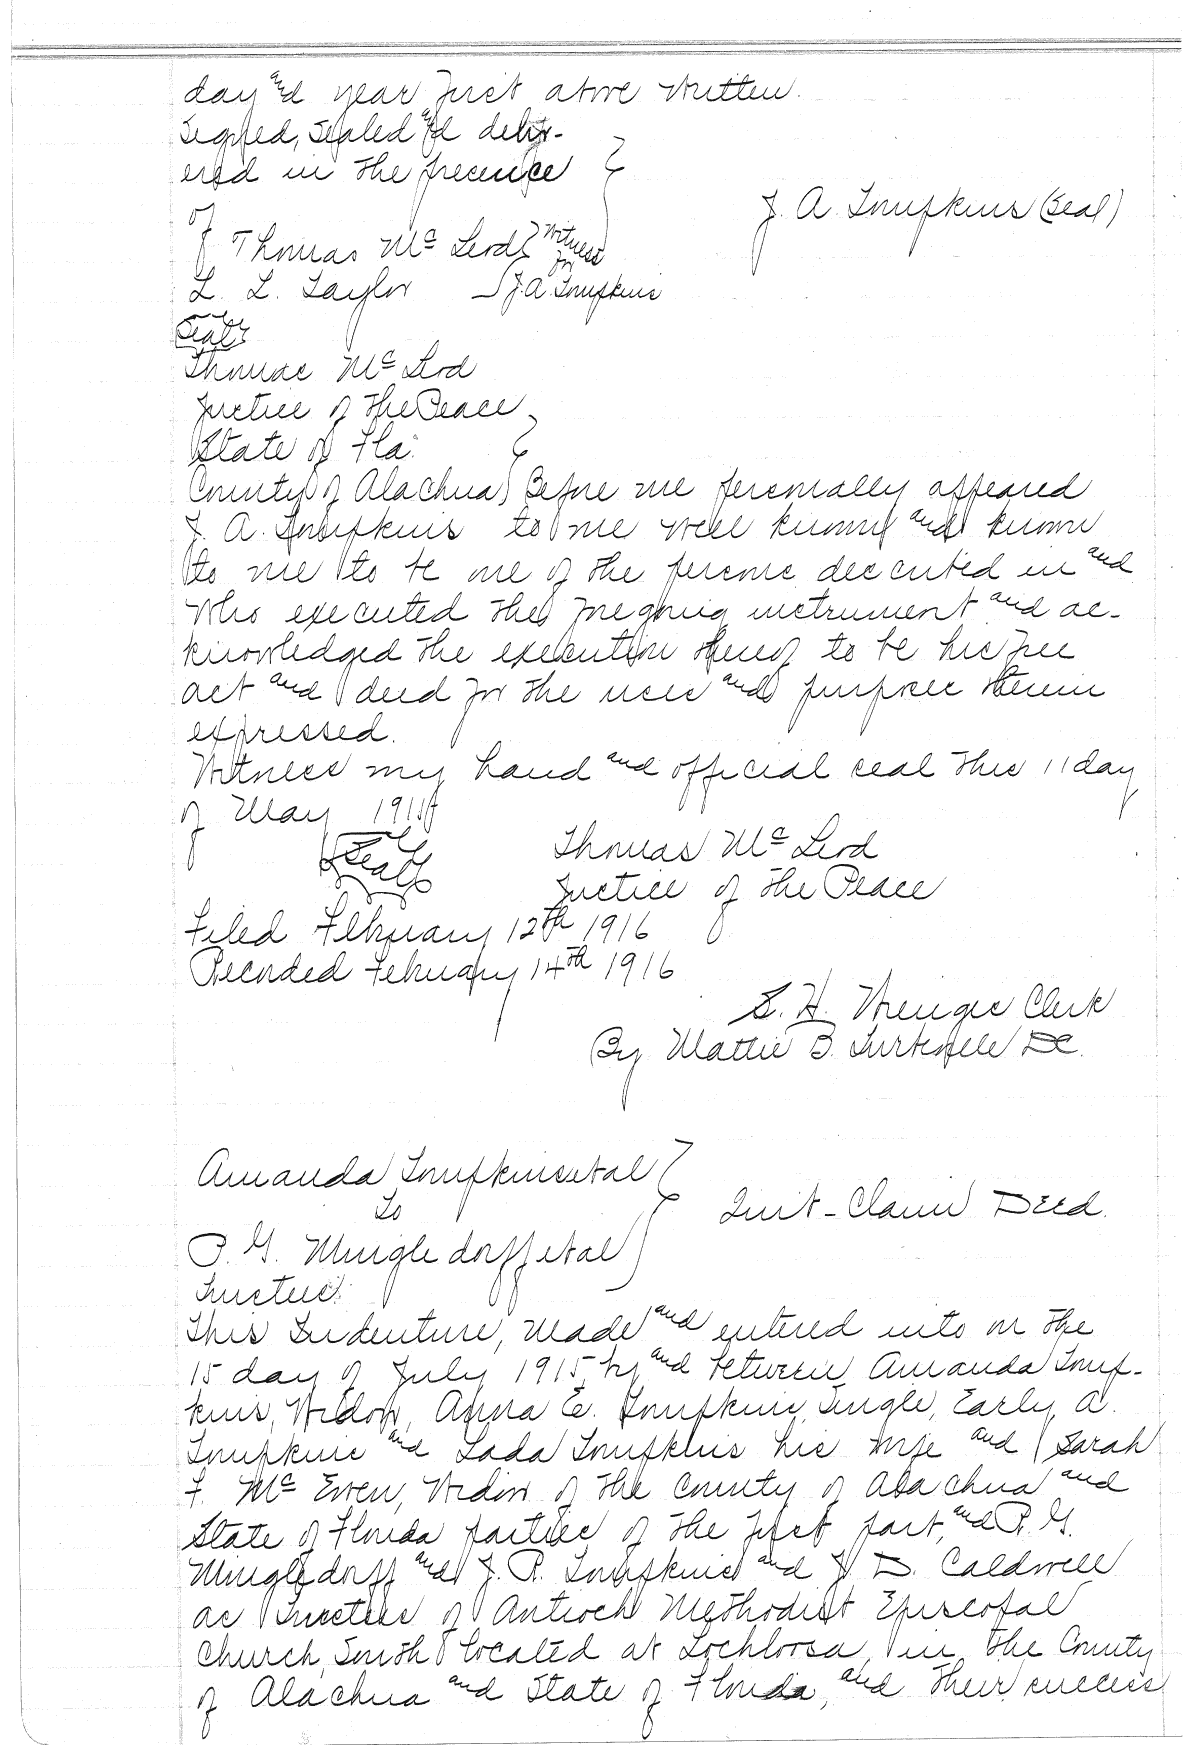 day and year first above written.
Signed, Sealed and deliv-
ered in the presence
of
J. A. Tompkins (Seal)
Thomas Mc Leod Witness for
L. L. Taylor J. A. Tompkins
Seal
Thomas Mc Leod
Justice of the Peace
State of Fla.
County of Alachua Before me personally appeared
J. A. Tompkins to me well known and known
to me to be one of the persons described in and
who executed the foregoing instrument and ac-
knowledged the execution thereof to be his free
act and deed for the uses and purposes therein
expressed.
Witness my hand and official seal this 11 day
of May
Seal Thomas Mc Leod
Justice of the Peace
Filed February 12th 1916
Recorded February 14th 1916
S. H. Wienges Clerk
By Mattie B. DC.
Amanda Tompkins et al
To
Quit-Claim Deed.
P. G. Mingledorff et al
Trustees
This Indenture, Made and entered into on the
15 day of July 1915, by and between Amanda Tomp-
kins, Widow, Anna E. Tompkins, Single, Early A.
Tompkins and Lada Tompkins his wife and Sarah
F. Mc Ewen, Widow of the County of Alachua and
State of Florida parties of the first part, and P. G.
Mingledorff and J. R. Tompkins and J. D. Caldwell
as Trustees of Antioch Methodist Episcopal
Church, South located at Lochloosa, in the County
of Alachua and State of Florida, and their success